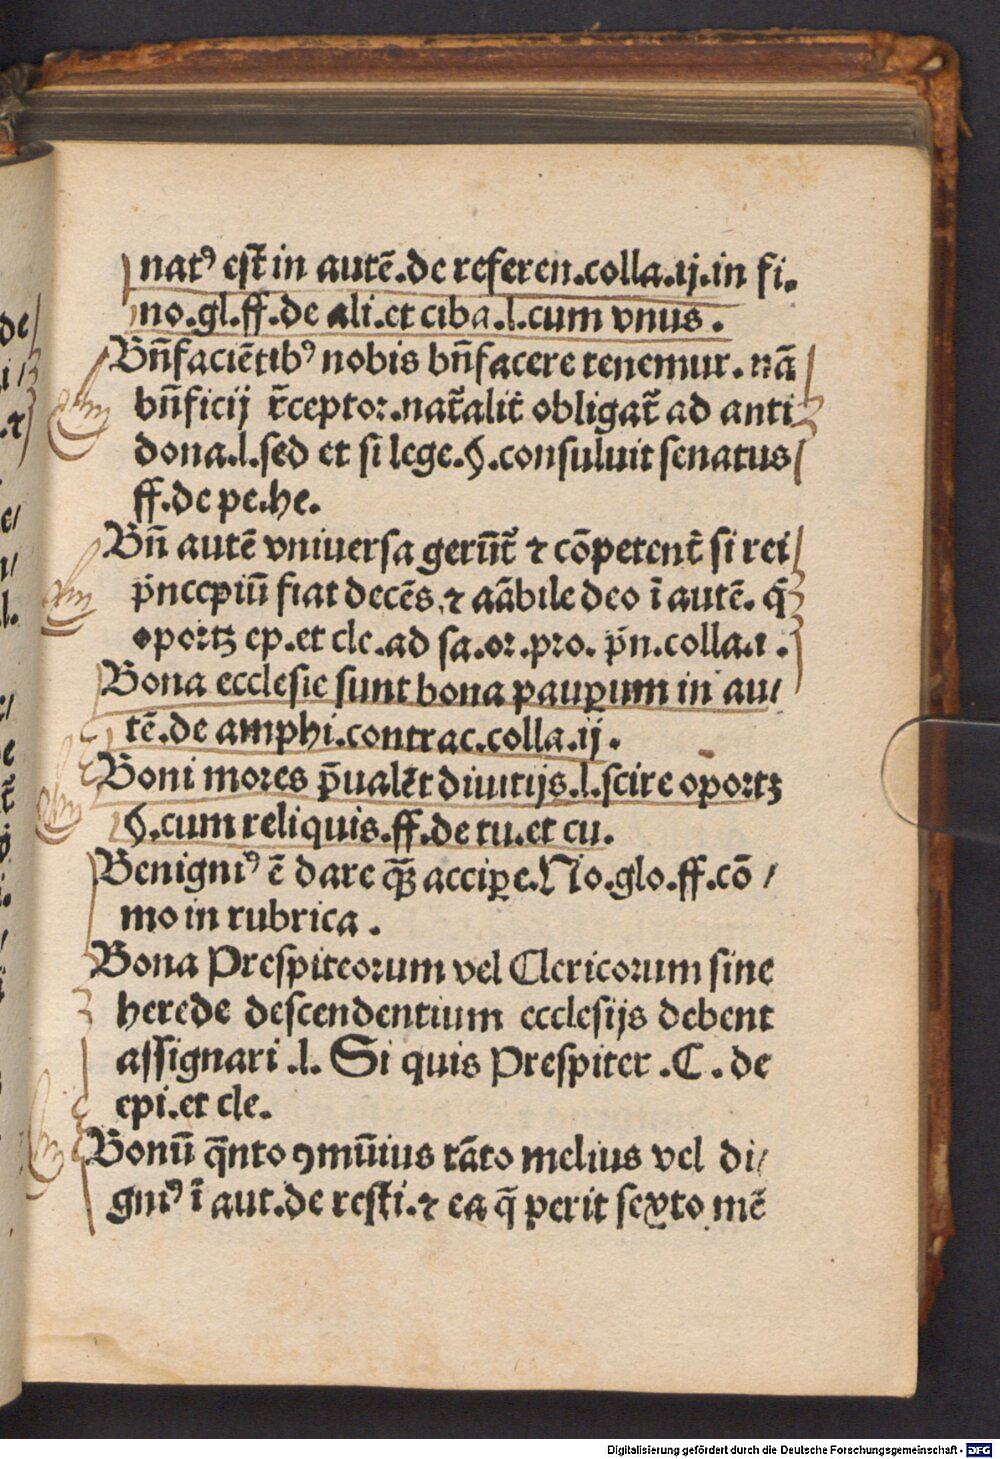 natꝰ est̃ in autẽ.de referen.colla.ij.in fi.
no.gl.ff.de ali.et ciba.l.cum vnus.
Bñfaciẽtibꝰ nobis bñfacere tenemur. nã
bñficij r̃ceptor.nat̃alit̃ obligat̃ ad anti
dona.l.sed et si lege.§.consuluit senatus
ff.de pe.he.
Bñ autẽ vniuersa gerũt̃ ⁊ cõpetent̃ si rei
p̃ncipiũ fiat decẽs.⁊ aãbile deo ĩ autẽ. q̃
oportꝫ ep.et cle.ad sa.or.pro. p̃n.colla.i.
Bona ecclesie sunt bona pauꝑum in au/
tẽ.de amphi.contrac.colla.ij.
Boni mores p̃ualẽt diuitijs.l.scire oportꝫ
§.cum reliquis.ff.de tu.et cu.
Benigniꝰ ẽ dare q̃ꝫ acciꝑe.No.glo.ff.cõ/
mo in rubrica.
Bona Prespiteorum vel Clericorum sine
herede descendentium ecclesijs debent
assignari.l. Si quis Prespiter.C.de
epi.et cle.
Bonũ q̃nto ꝯmũius tãto melius vel di/
gniꝰ ĩ aut.de resti.⁊ ea q̃ perit sexto mẽ
de
i
.⁊
Digitalisierung gefördert durch die Deutsche Forschungsgemeinschaft - DFG